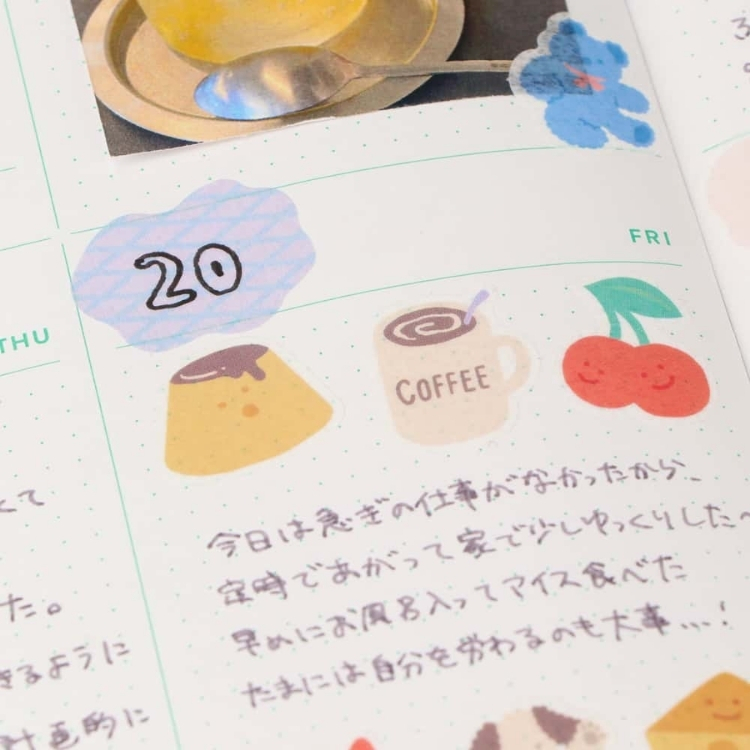 FRI
20
THU
COFFEE
今日は急ぎの仕事がなかったから、
定時であがって家で少しゆっくりした〜
早めにお風呂入ってアイス食べた
たまには自分を労わるのも大事…!
くて
た。
きるように
計画的に